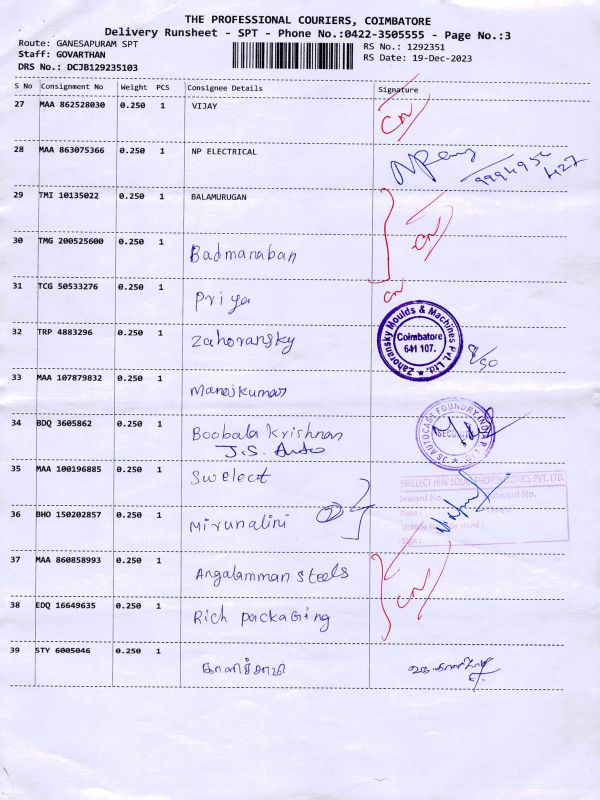 THE PROFESSIONAL COURIERS, COIMBATORE
Delivery Runsheet - SPT - Phone No.:0422-3505555 - Page No.:3
Route: GANESAPURAM SPT
RS No.: 1292351
Staff: GOVARTHAN
RS Date: 19-Dec-2023
DRS No.: DCJB129235103
S No Consignment No Weight PCS Consignee Details Signature
27 MAA 862528030 0.250 1 VIJAY CN
28 MAA 863075366 0.250 1 NP ELECTRICAL
29 TMI 10135022 0.250 1 BALAMURUGAN
30 TMG 200525600 0.250 1 Badmanaban CN
31 TCG 50533276 0.250 1 Priya CN
32 TRP 4883296 0.250 1 Zahoransky
Zahoransky Moulds & Machines Pvt. Ltd.
Coimbatore
641 107.
33 MAA 107879832 0.250 1 Manojkumar
34 BDQ 3605862 0.250 1 Boobala Krishnan
J.S. Auto
JS AUTOCAST FOUNDRY INDIA P. LTD.
35 MAA 100196885 0.250 1 Swelect
SWELECT HHV SOLAR PHOTOVOLTAICS PVT. LTD.
Inward No. Outward No.
36 BHO 150202857 0.250 1 Mirunalini
37 MAA 860858993 0.250 1 Angalamman steels
38 EDQ 16649635 0.250 1 Rich packaGing CN
39 STY 6005046 0.250 1